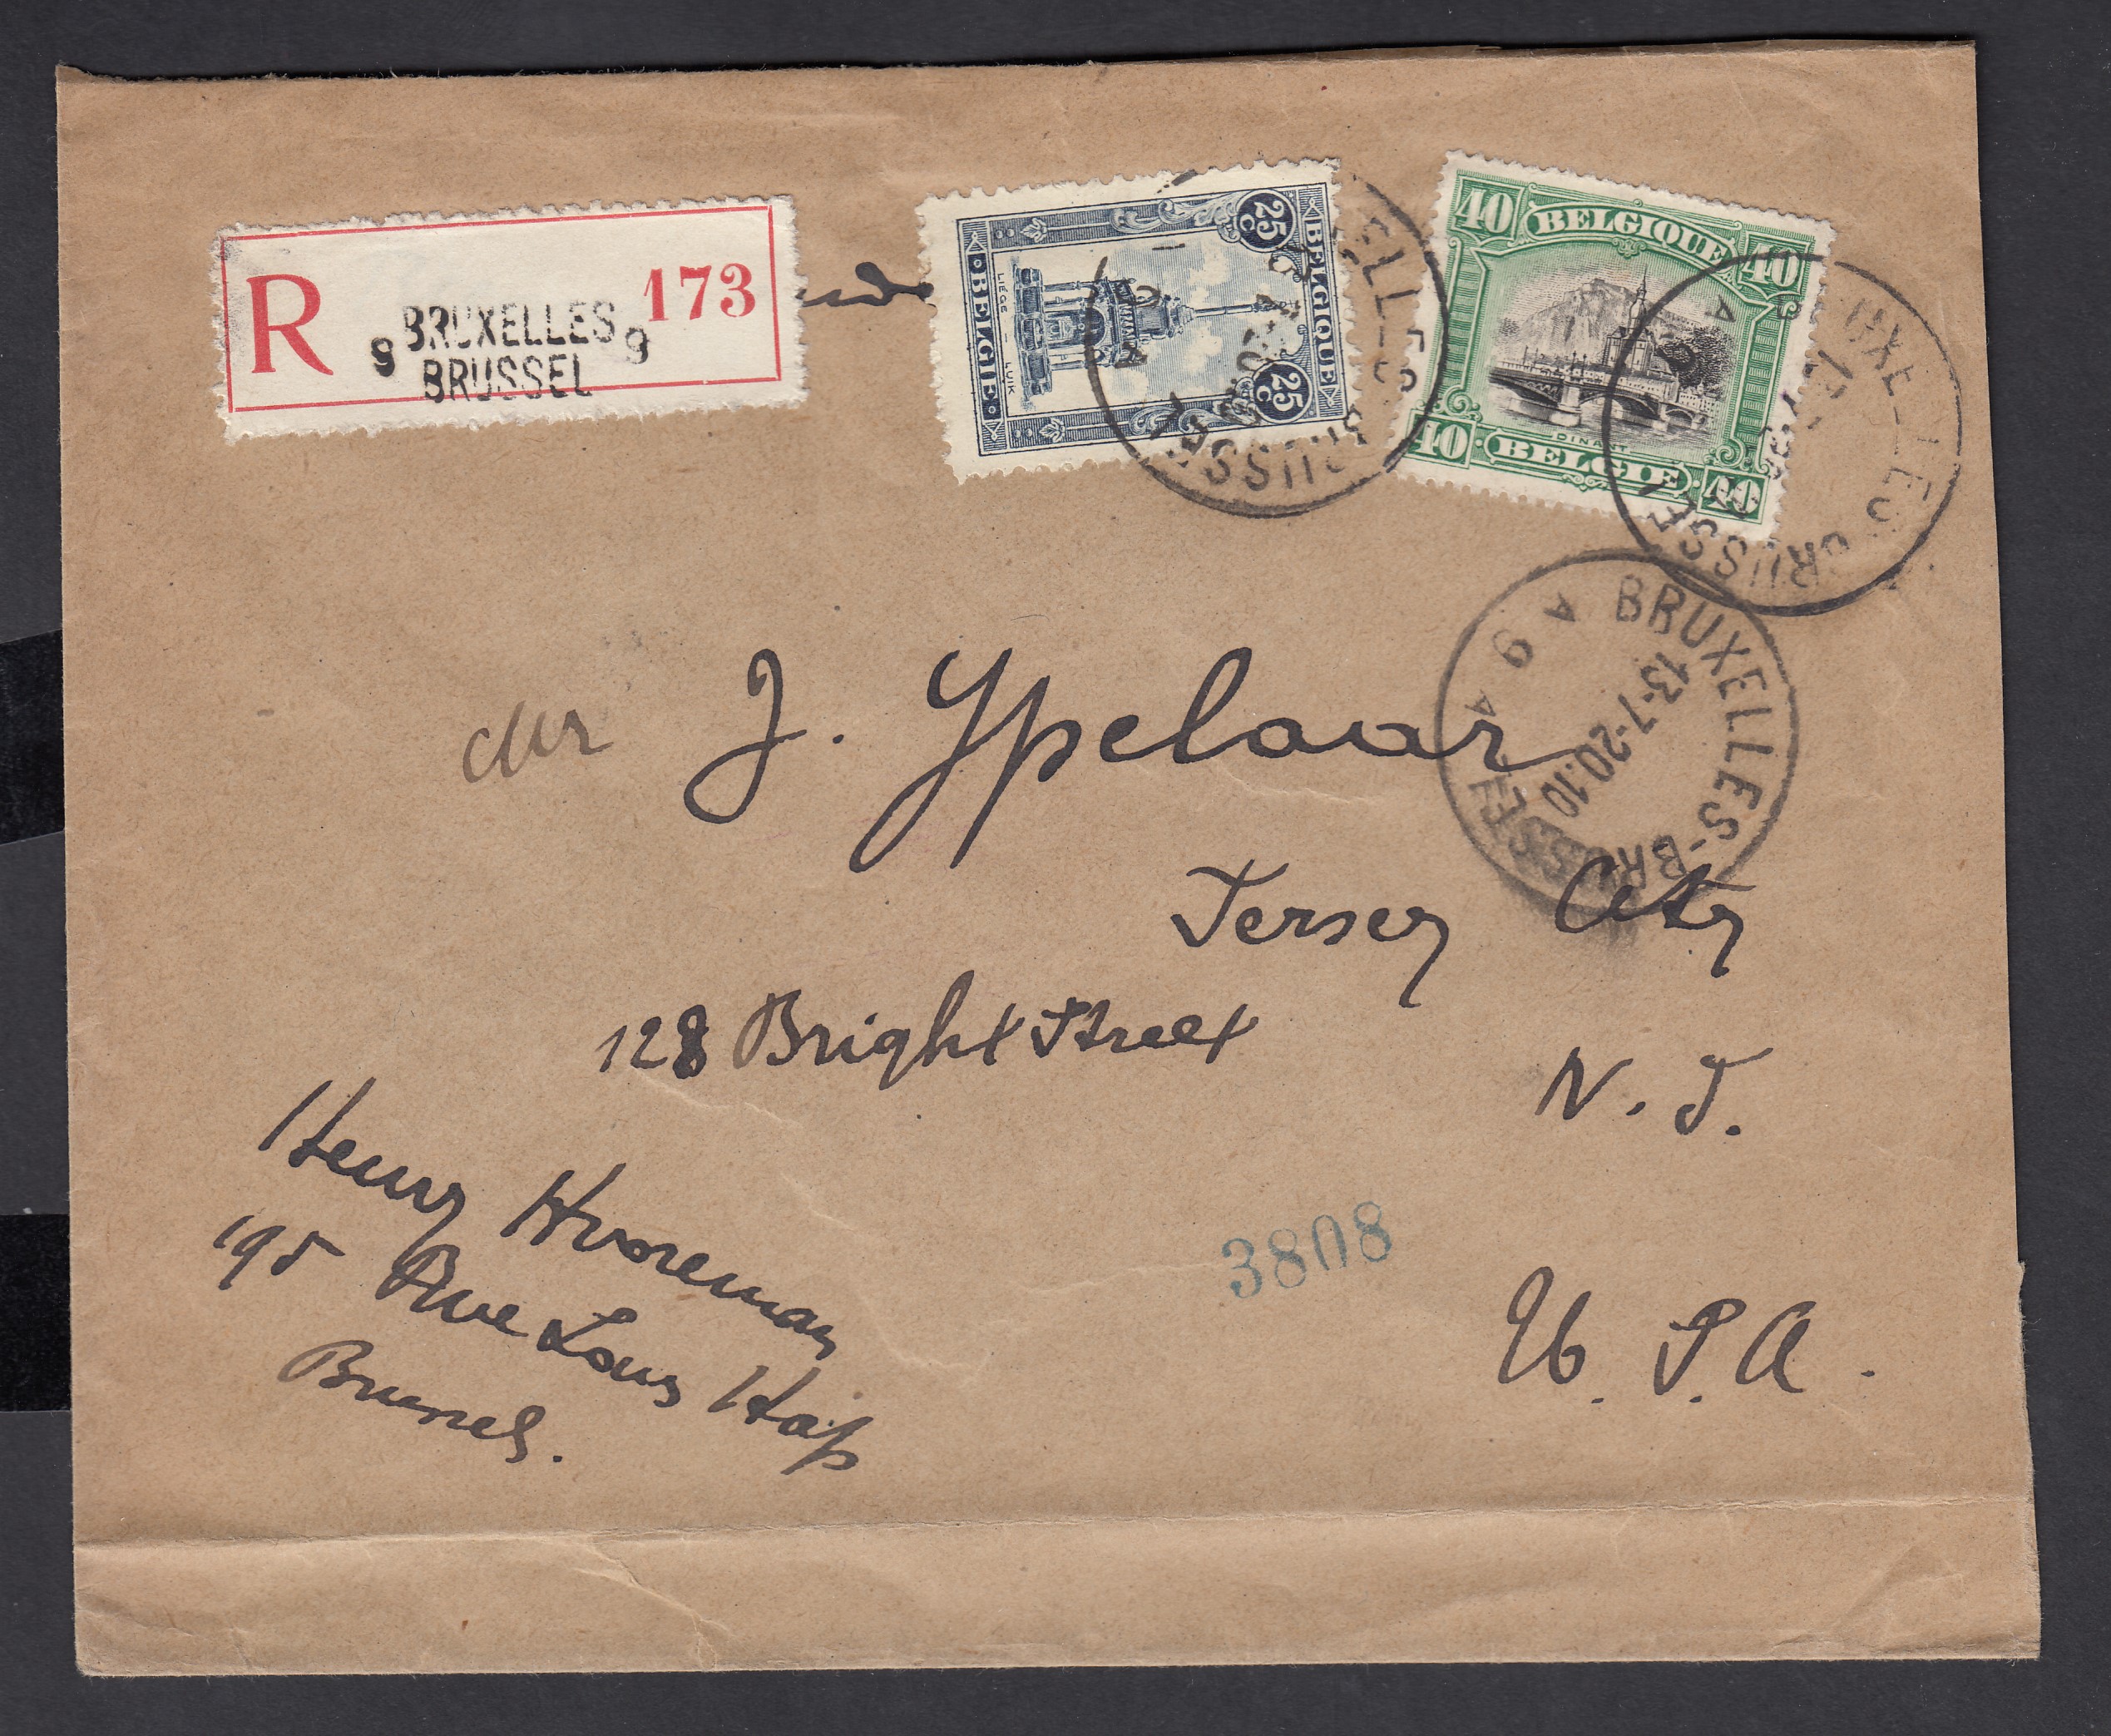 R
173
9 BRUXELLES 9
BRUSSEL
25 C BELGIQUE 25 C
LIEGE - LUIK
BELGIË
40 BELGIQUE 40
DINANT
40 BELGIË 40
BRUXELLES BRUSSEL
BRUXELLES-BRUSSEL
A 9 A
13-7-20.10
Mr J. Ypelaar
Jersey City
128 Bright Street
N. J.
Henry
195 Ave Louis Hap
Brussels.
3808
U. S. A.